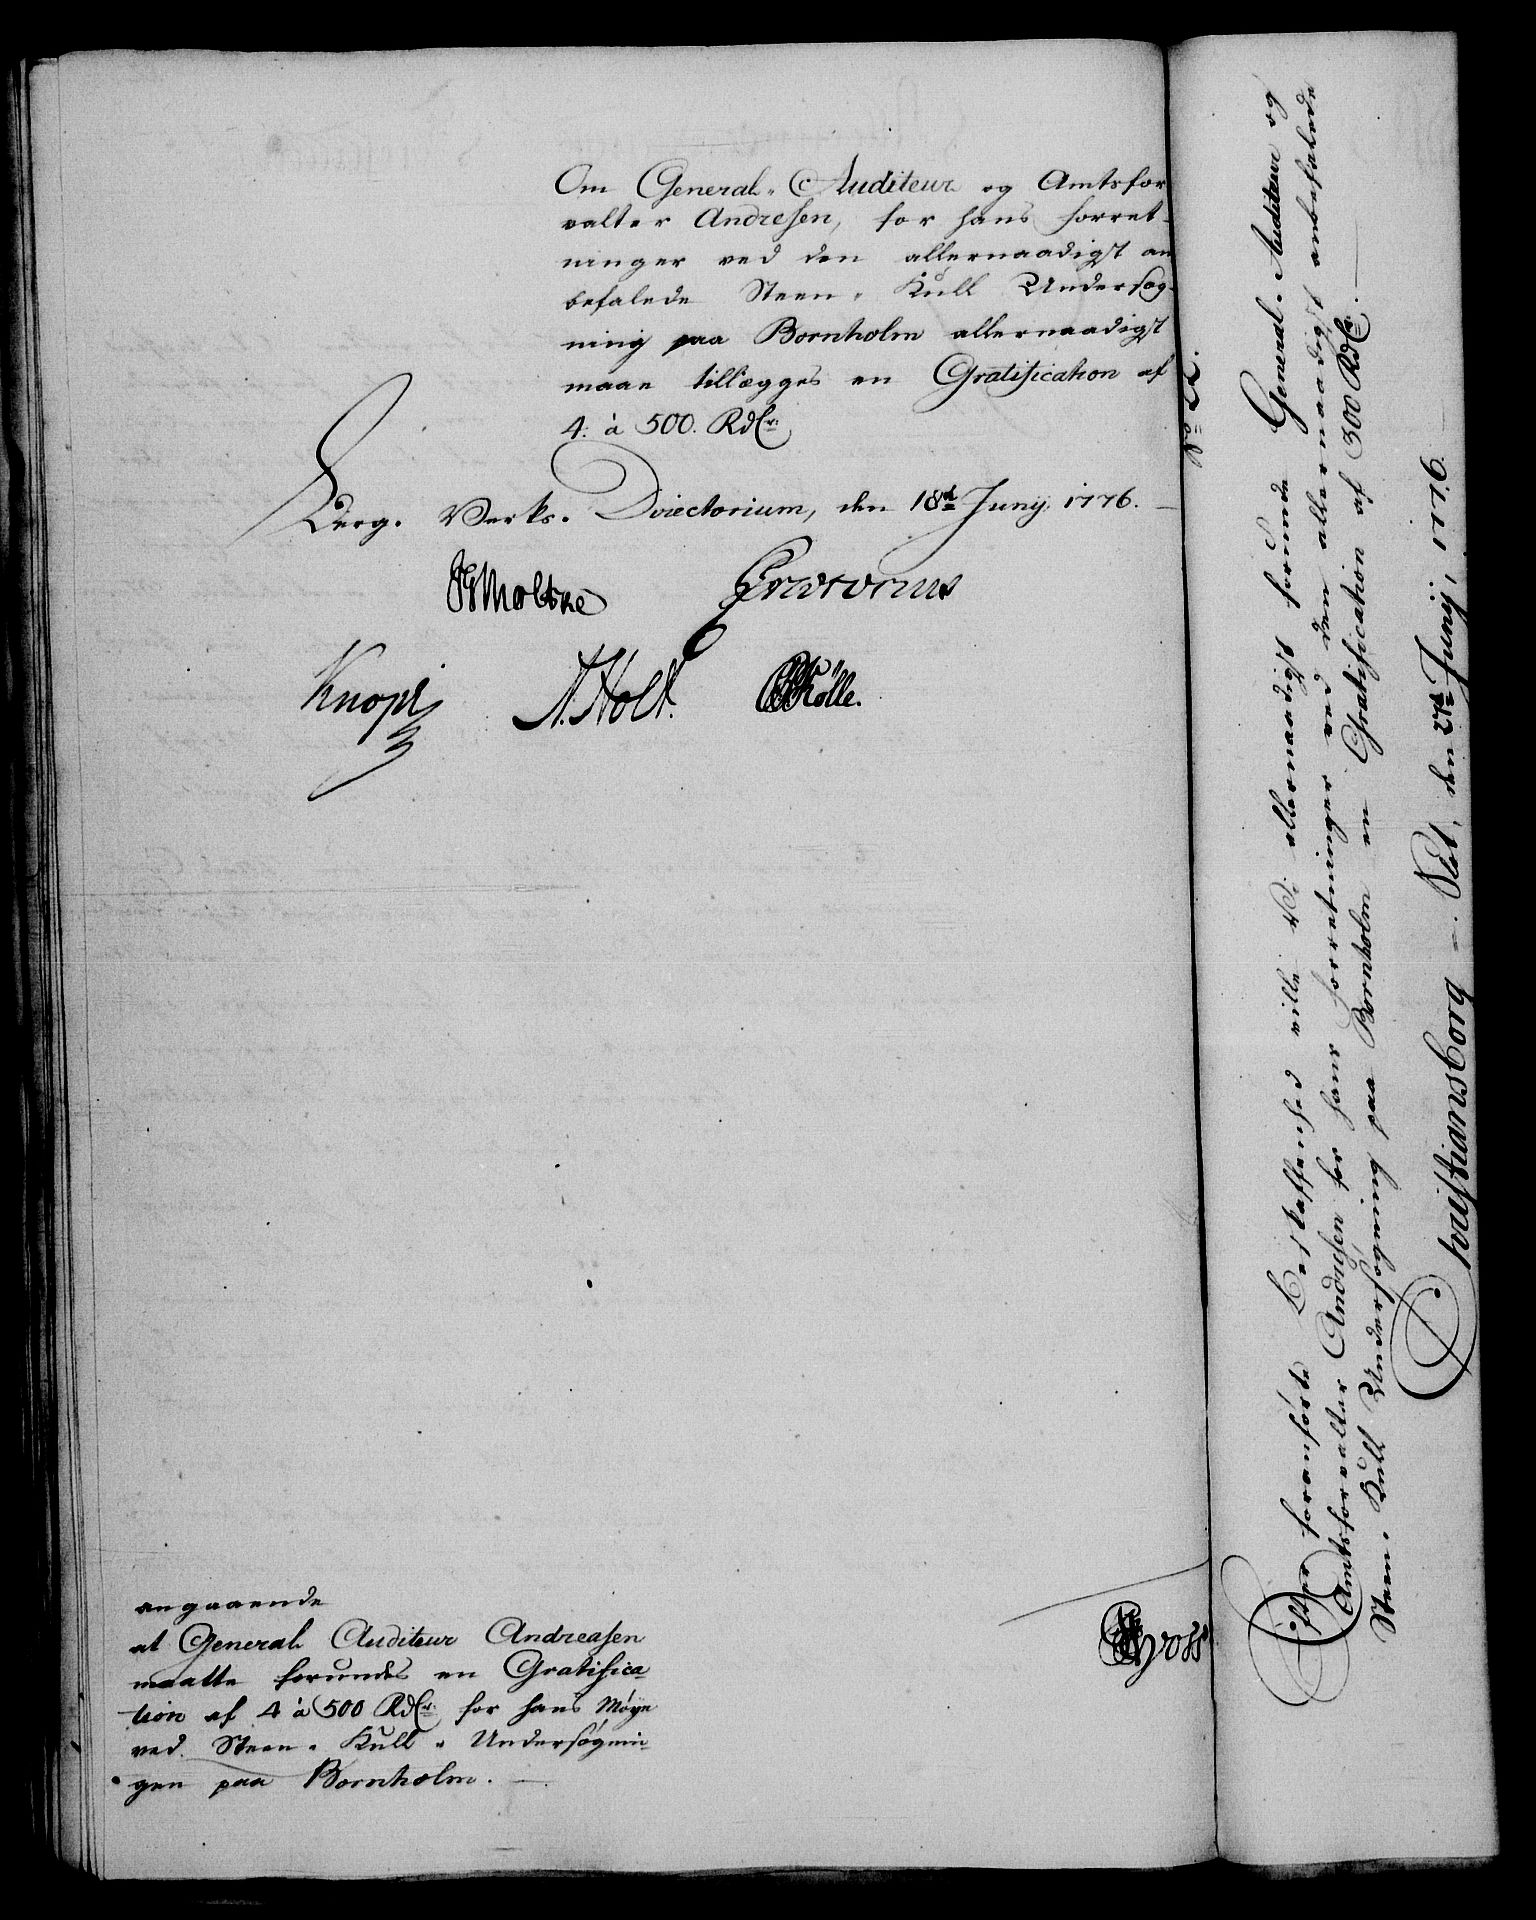 Om General-Auditeur og Amtsfor
valter Andresen, for hans forret-
ninger ved den allernaadigst an
befalede Steen-Kull Undersøg-
ning paa Bornholm allernaadigst
maae tillægges en Gratification af
4: à 500. Rdlr:
Berg-Verks-Directorium, den 18de Junij 1776.
Knoph
A. Holt.
Kølle.
angaaende
at General Auditeur Andreasen
maatte forundes en Gratifica-
tion af 4 à 500 Rdlr: for hans Møye
ved Steen-Kull-Undersøgnin-
gen paa Bornholm.
Efter foranførte Beskaffenhed ville Vi allernaadigst forunde General-Auditeur og
Amtsforvalter Andresen for hans forretninger ved den allernaadigst anbefalede
Steen-Kull Undersøgning paa Bornholm en Gratification af 300 Rdlr:
Christiansborg-Slot, den 27de Junij, 1776.